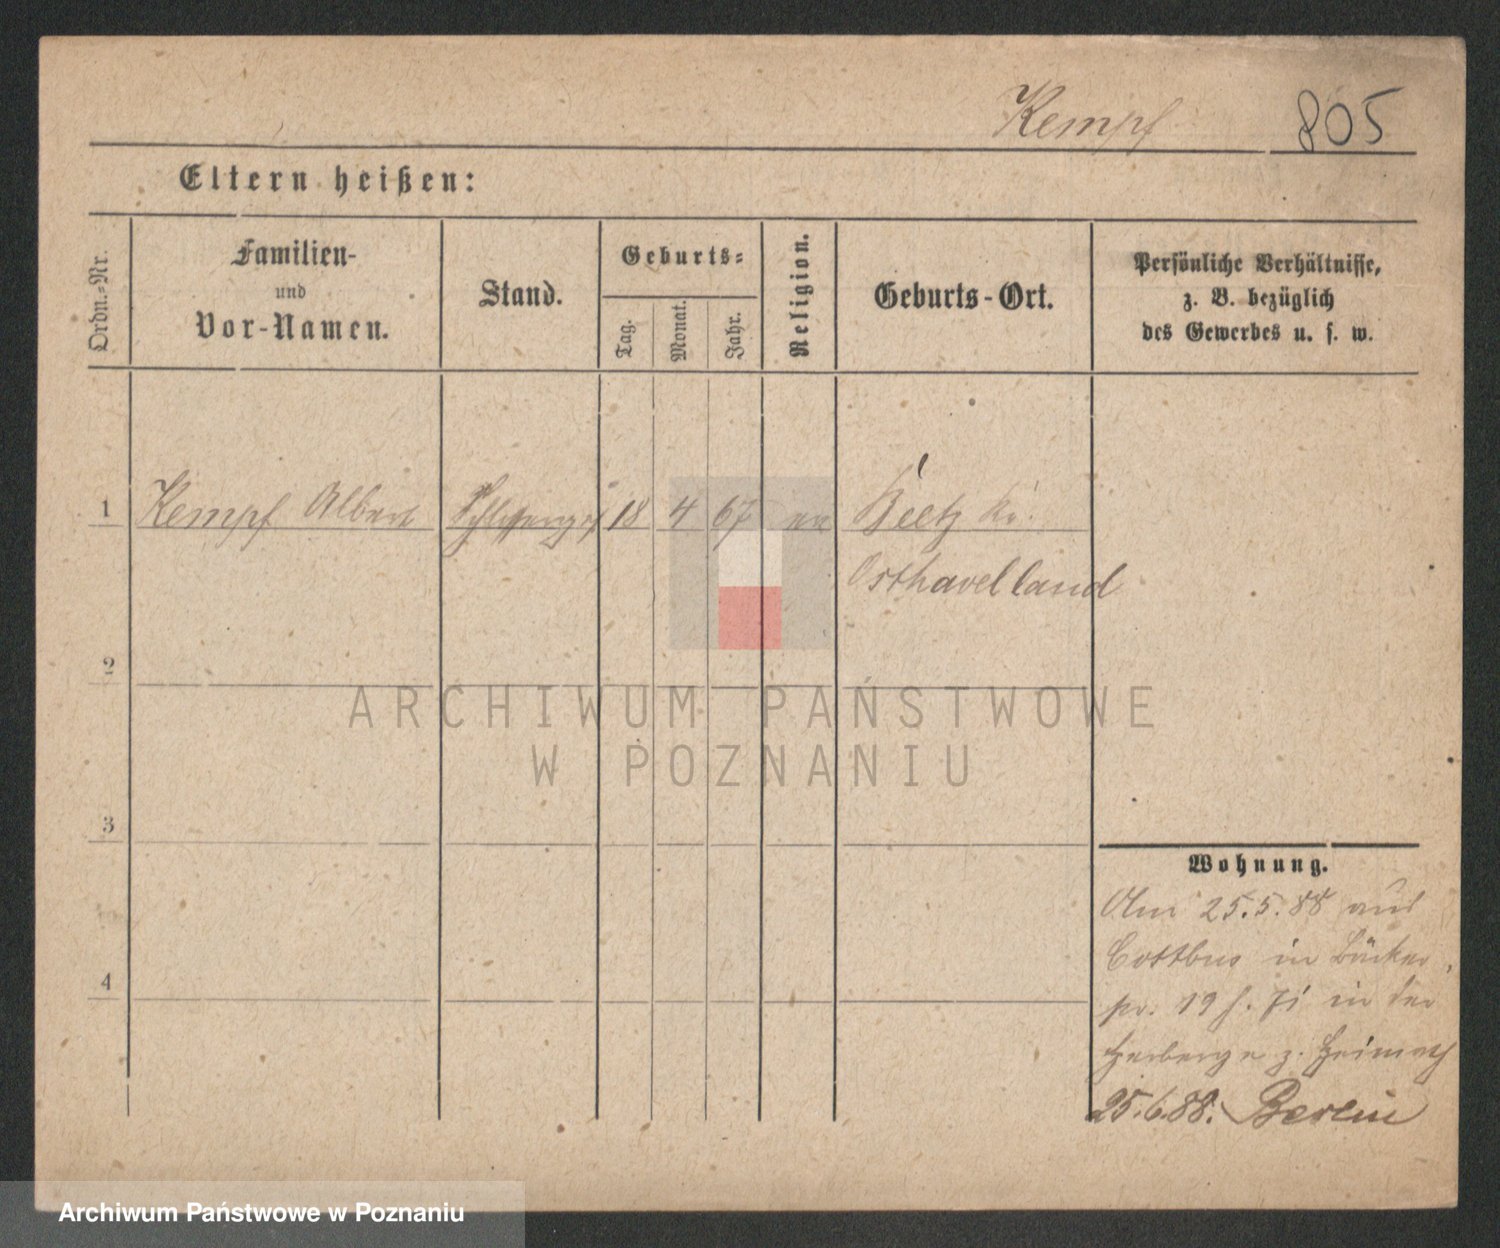 Kempf 805
Eltern heißen:
Ordn.-Nr.
Familien-
und
Vor-Namen.
Stand.
Geburts-
Tag.
Monat.
Jahr.
Religion.
Geburts-Ort.
Persönliche Verhältnisse,
z. B. bezüglich
des Gewerbes u. s. w.
1 Kempf Albert 18 4 67 Beetz Kr.
Osthavelland
2
ARCHIWUM PAŃSTWOWE
W POZNANIU
3
Wohnung.
Am 25.5.88 aus
Cottbus in Bäcker
4
19 in der
Herberge z. Heimath
25.6.88. Berlin
Archiwum Państwowe w Poznaniu